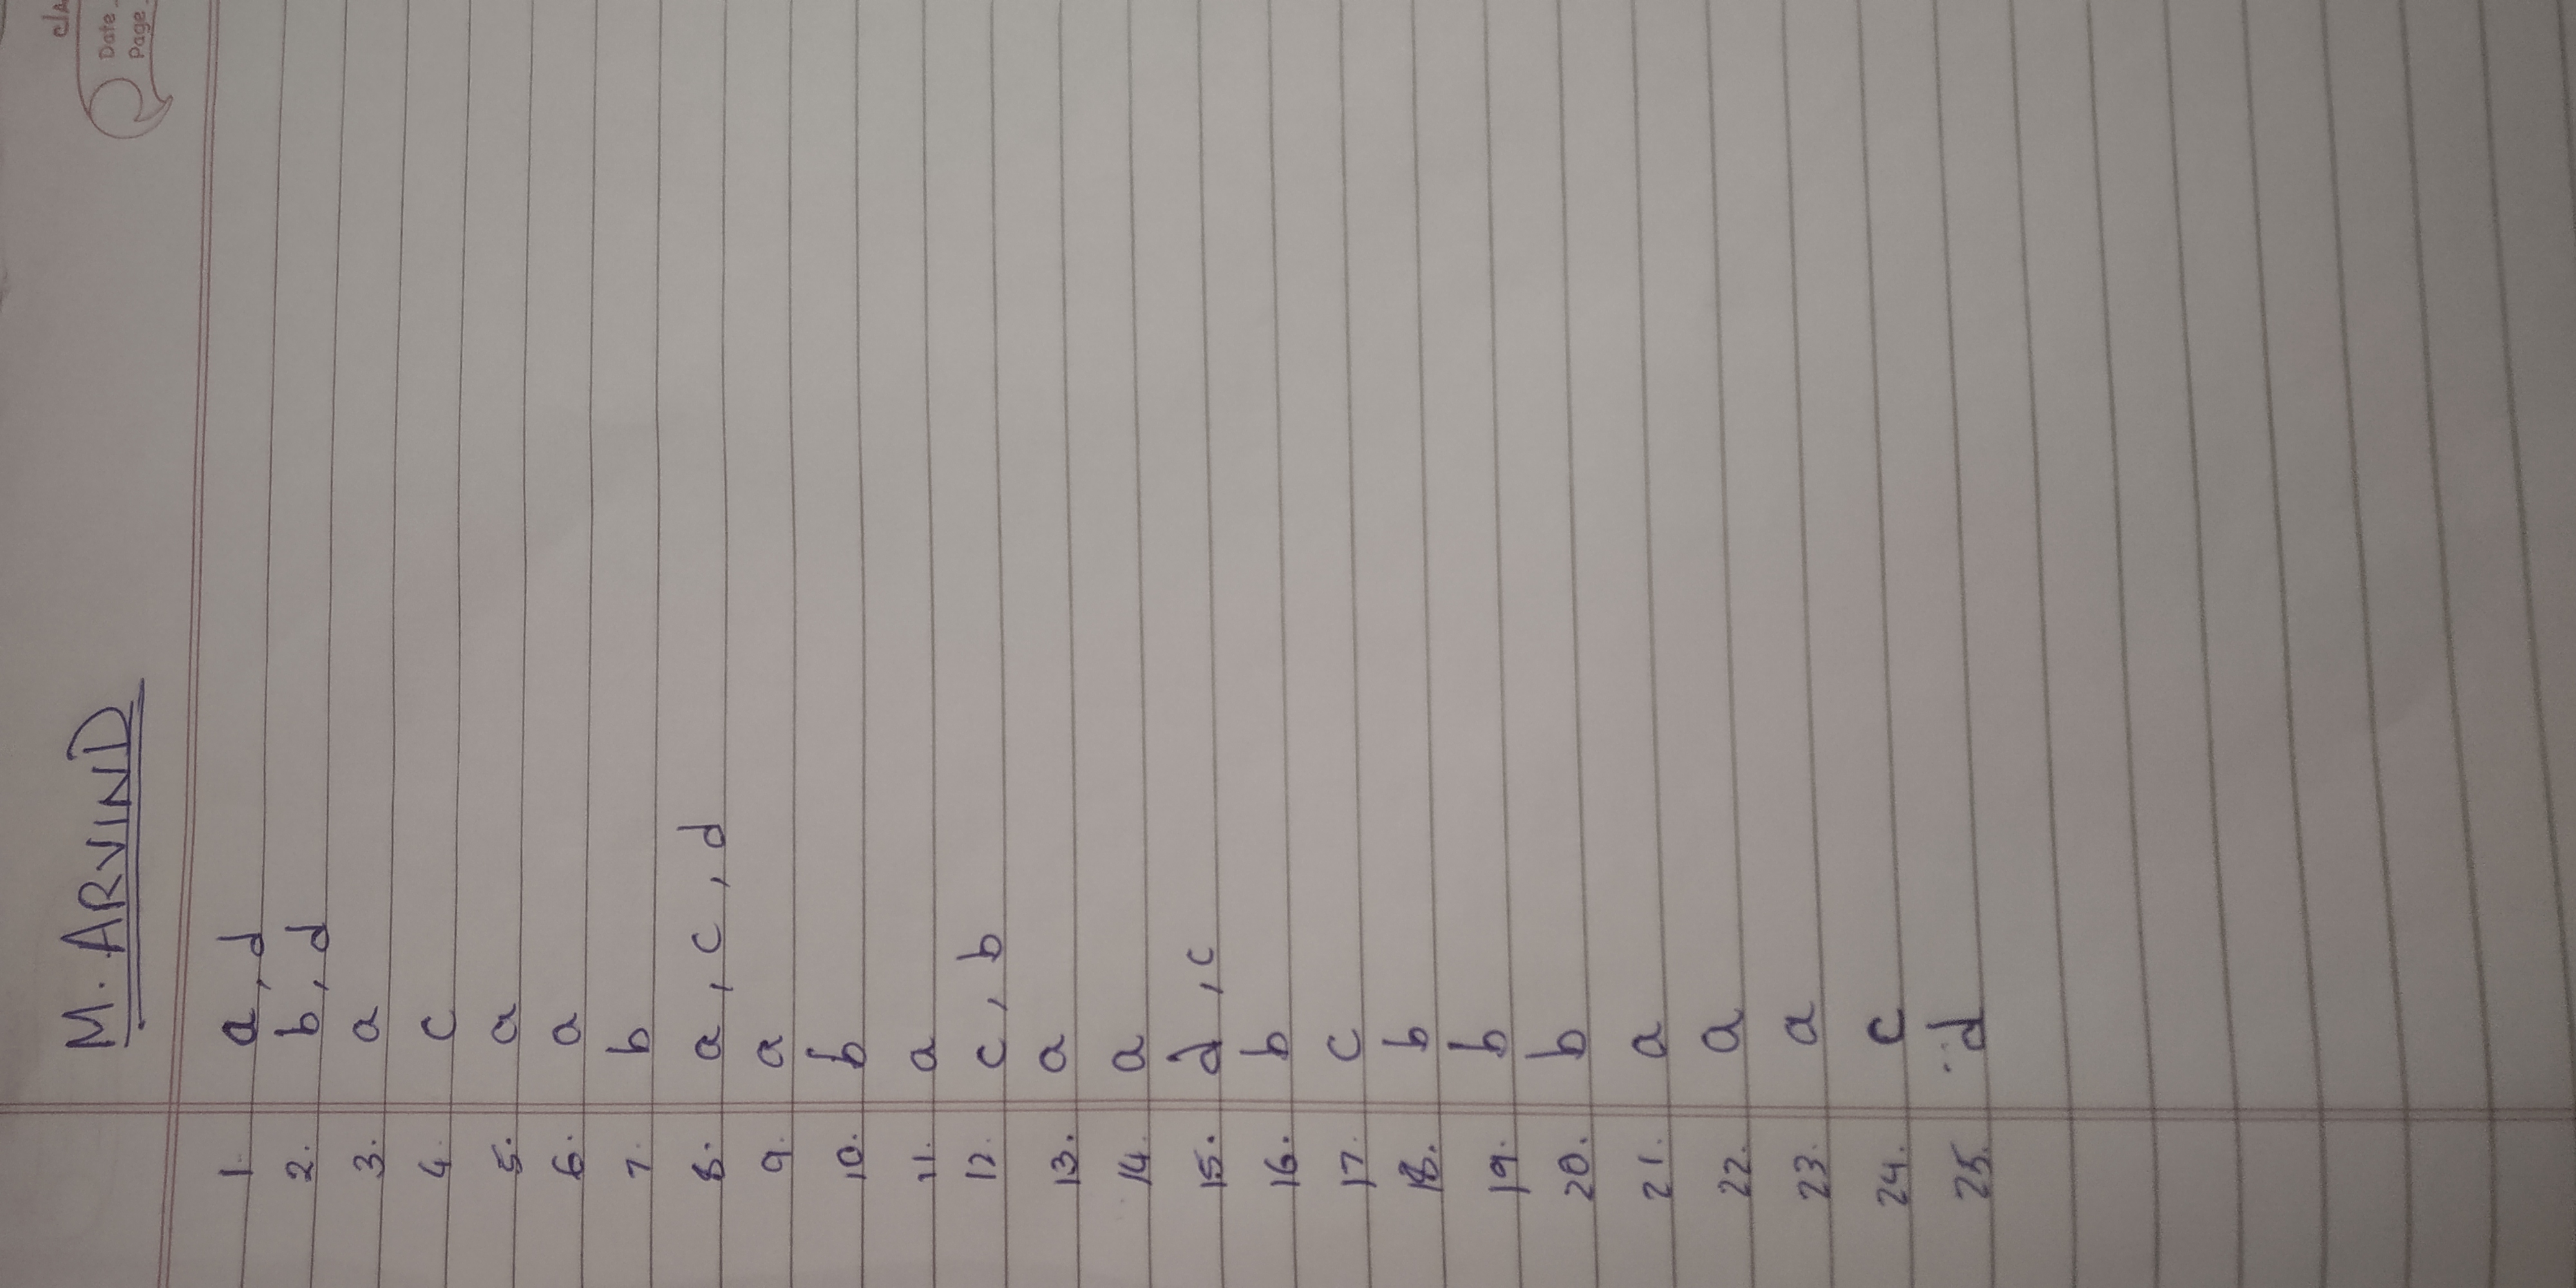 M. ARVIND
Date
Page
1. a, d
2. b, d
3. a
4. c
5. a
6. a
7. b
8. a, c, d
9. a
10. b
11. a
12. c, b
13. a
14. a
15. d, c
16. b
17. c
18. b
19. b
20. b
21. a
22. a
23. a
24. c
25. d